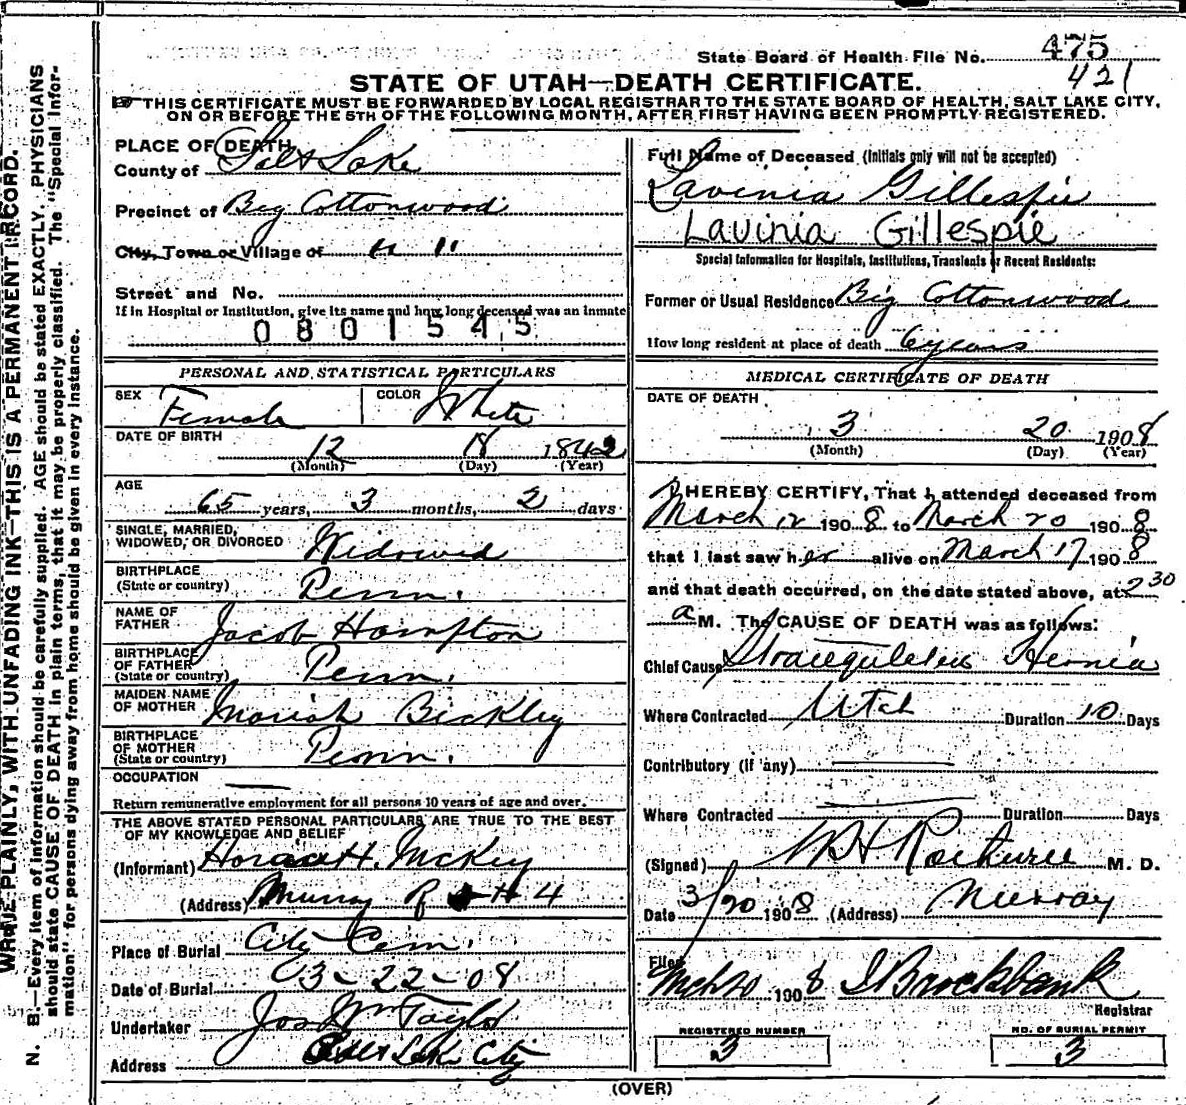 State Board of Health File No. 475
421
STATE OF UTAH—DEATH CERTIFICATE.
THIS CERTIFICATE MUST BE FORWARDED BY LOCAL REGISTRAR TO THE STATE BOARD OF HEALTH, SALT LAKE CITY,
ON OR BEFORE THE 5TH OF THE FOLLOWING MONTH, AFTER FIRST HAVING BEEN PROMPTLY REGISTERED.
WRITE PLAINLY, WITH UNFADING INK—THIS IS A PERMANENT RECORD.
N. B.—Every item of information should be carefully supplied. AGE should be stated EXACTLY. PHYSICIANS
should state CAUSE OF DEATH in plain terms, that it may be properly classified. The "Special Infor-
mation" for persons dying away from home should be given in every instance.
PLACE OF DEATH
County of Salt Lake
Precinct of Big Cottonwood
City, Town or Village of " "
Street and No.
If in Hospital or Institution, give its name and how long deceased was an inmate
0801545
PERSONAL AND STATISTICAL PARTICULARS
SEX Female COLOR White
DATE OF BIRTH 12 18 1842
(Month) (Day) (Year)
AGE
65 years, 3 months, 2 days
SINGLE, MARRIED,
WIDOWED, OR DIVORCED Widowed
BIRTHPLACE
(State or country) Penn.
NAME OF
FATHER Jacob Hampton
BIRTHPLACE
OF FATHER
(State or country) Penn.
MAIDEN NAME
OF MOTHER Mariah Bickley
BIRTHPLACE
OF MOTHER
(State or country) Penn.
OCCUPATION
Return remunerative employment for all persons 10 years of age and over.
THE ABOVE STATED PERSONAL PARTICULARS ARE TRUE TO THE BEST
OF MY KNOWLEDGE AND BELIEF
(Informant) H. McKey
(Address) Murray R 4
Place of Burial City Cem.
Date of Burial 3-22-08
Undertaker Jos Wm Taylor
Address Salt Lake City
Full Name of Deceased (Initials only will not be accepted)
Lavinia Gillespie
Lavinia Gillespie
Special Information for Hospitals, Institutions, Transients or Recent Residents:
Former or Usual Residence Big Cottonwood
How long resident at place of death 6 years
MEDICAL CERTIFICATE OF DEATH
DATE OF DEATH
3 20 1908
(Month) (Day) (Year)
I HEREBY CERTIFY, That I attended deceased from
March 12 1908 to March 20 1908
that I last saw her alive on March 17 1908
and that death occurred, on the date stated above, at 2 30
a M. The CAUSE OF DEATH was as follows:
Chief Cause Hernia
Where Contracted Utah Duration 10 Days
Contributory (if any)
Where Contracted Duration Days
(Signed) M. D.
Date 3/20 1908 (Address) Murray
Filed Mch 20 1908 Brockbank
Registrar
REGISTERED NUMBER
3
NO. OF BURIAL PERMIT
3
(OVER)